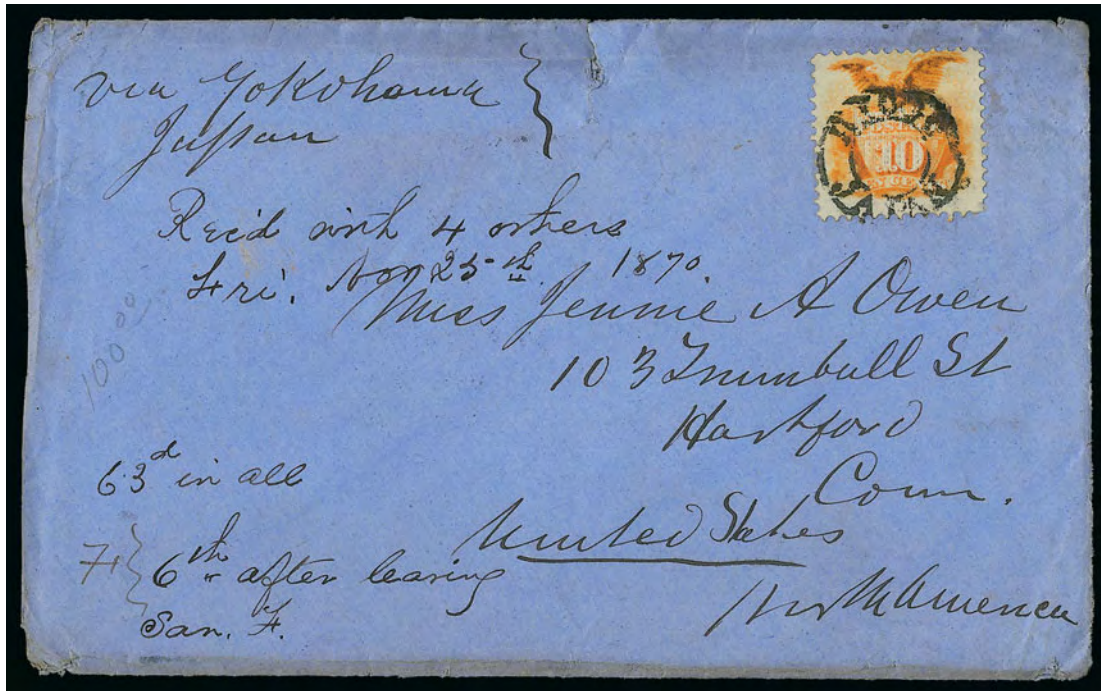 via Yokohama
Japan
Rec'd with 4 others
Fri. Nov 25th 1870.
Miss Jennie A Owen
103 Trumbull St
Hartford
Conn.
United States
North America
100 00
63d in all
7 } 6th after leaving
San. F.
10